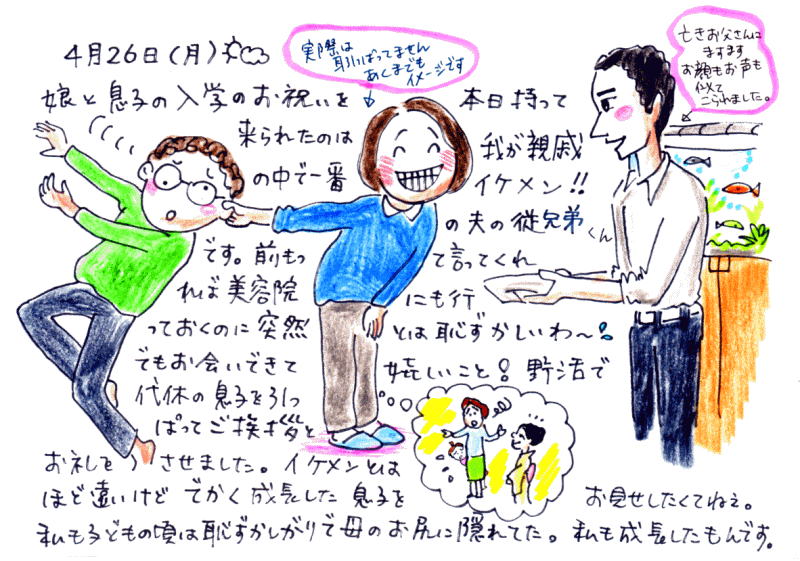 4月26日(月)
実際は
引っぱってません
あくまでも
イメージです
亡きお父さんに
ますます
お顔もお声も
似て
こられました。
娘と息子の入学のお祝いを 本日持って
来られたのは 我が親戚
の中で一番 イケメン!!
の夫の従兄弟くん
です。前もって言ってくれ
れば美容院にも行
っておくのに突然とは恥ずかしいわ〜!
でもお会いできて嬉しいこと! 野活で
代休の息子を引っ
ぱってご挨拶と
お礼を させました。イケメンとは
ほど遠いけど でかく成長した息子を お見せしたくてねぇ。
私も子どもの頃は恥ずかしがりで母のお尻に隠れてた。私も成長したもんです。